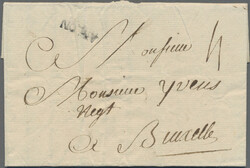 A Monsieur
Monsieur Yvens
Negt
a Bruxelle